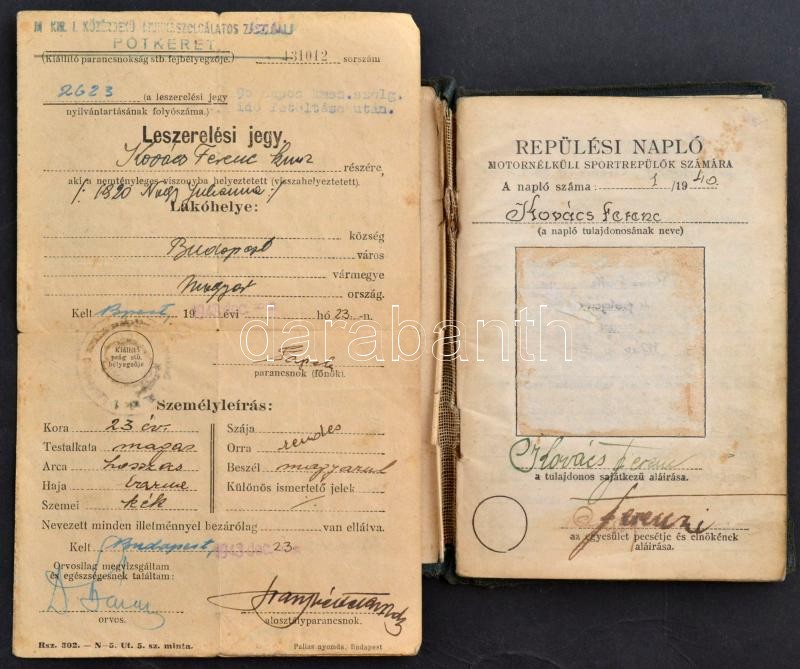 M. KIR. I. KÖZÉRDEKŰ MUNKASZOLGÁLATOS ZÁSZLÓALJ
PÓTKERET
(Kiállító parancsnokság stb. fejbélyegzője.) 431012 sorszám
2623 (a leszerelési jegy
nyilvántartásának folyószáma.)
90 napos kmsz.szolg.
idő letöltése után.
Leszerelési jegy.
Kovács Ferenc részére,
aki a nemtényleges viszonyba helyeztetett (visszahelyeztetett).
/: 1920 Nagy Julianna :/
Lakóhelye:
község
Budapest város
vármegye
Magyar ország.
Kelt Bpest, 19 évi hó 23-n.
Kiállító
pság stb.
bélyegzője
parancsnok (főnök).
Személyleírás:
Kora 23 év.
Testalkata magas
Arca hosszas
Haja barna
Szemei kék
Szája
Orra rendes
Beszél magyarul
Különös ismertető jelek
Nevezett minden illetménnyel bezárólag van ellátva.
Kelt Budapest, 1943 DEC. 23.
Orvosilag megvizsgáltam
és egészségesnek találtam:
orvos.
alosztályparancsnok.
Rsz. 302. — N—5. Ut. 5. sz. minta.
Pallas nyomda, Budapest
REPÜLÉSI NAPLÓ
MOTORNÉLKÜLI SPORTREPÜLŐK SZÁMÁRA
A napló száma: 1 /1940.
Kovács Ferenc
(a napló tulajdonosának neve)
Kovács Ferenc
a tulajdonos sajátkezű aláírása.
Ferenzi
az egyesület pecsétje és elnökének
aláírása.
darabanth